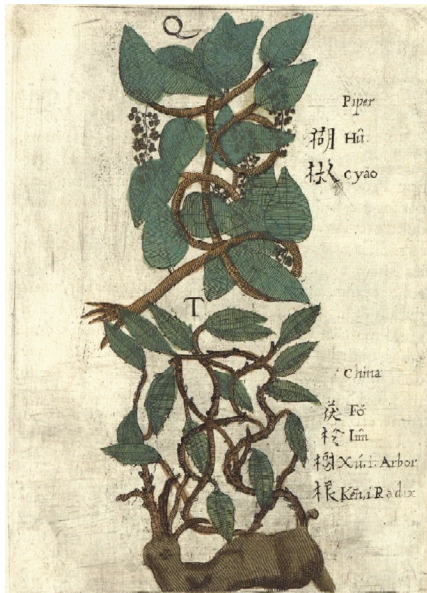 Q
Piper
楜 Hû
椒 cyāo
T
China
茯 Fŏ
柃 lîn
樹 Xú.i. Arbor
根 Kēn.i Radix